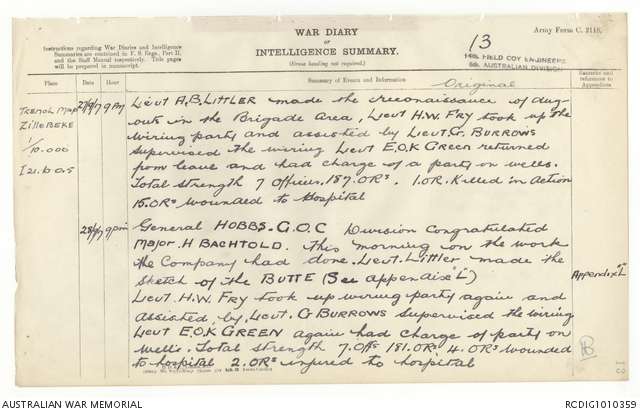 WAR DIARY
or
INTELLIGENCE SUMMARY.
(Erase heading not required.)
Army Form C. 2118.
Instructions regarding War Diaries and Intelligence
Summaries are contained in F. S. Regs., Part II.
and the Staff Manual respectively. Title pages
will be prepared in manuscript.
13
14th FIELD COY ENGINEERS
5th AUSTRALIAN DIVISION
Original
Place
Date
Hour
Summary of Events and Information
Remarks and
references to
Appendices
TRENCH MAP
ZILLEBEKE
1/10.000
I 21.b.0.5
27/9/17 9 PM
Lieut A.B. LITTLER made the reconaissance of dug-
outs in the Brigade Area, Lieut H.W. FRY took up the
wiring party and assisted by Lieut. G. BURROWS
supervised the wiring Lieut E.O.K GREEN returned
from leave and had charge of a party on wells.
Total strength 7 officers, 187. ORs. 1. O.R. Killed in Action
15. ORs wounded to Hospital
28/9/17 9 pm
General HOBBS. G.O.C Division Congratulated
Major. H BACHTOLD. this morning on the work
the Company had done. Lieut. Littler made the
sketch of the BUTTE (See appendix "L")
Appendix "L"
Lieut. H.W. FRY took up wiring party again and
assisted by Lieut. G BURROWS supervised the wiring
Lieut E.O.K GREEN again had charge of party on
wells. Total strength 7. Offs 181. ORs 4. ORs wounded
to hospital 2. ORs injured to hospital
13
AUSTRALIAN WAR MEMORIAL
RCDIG1010359